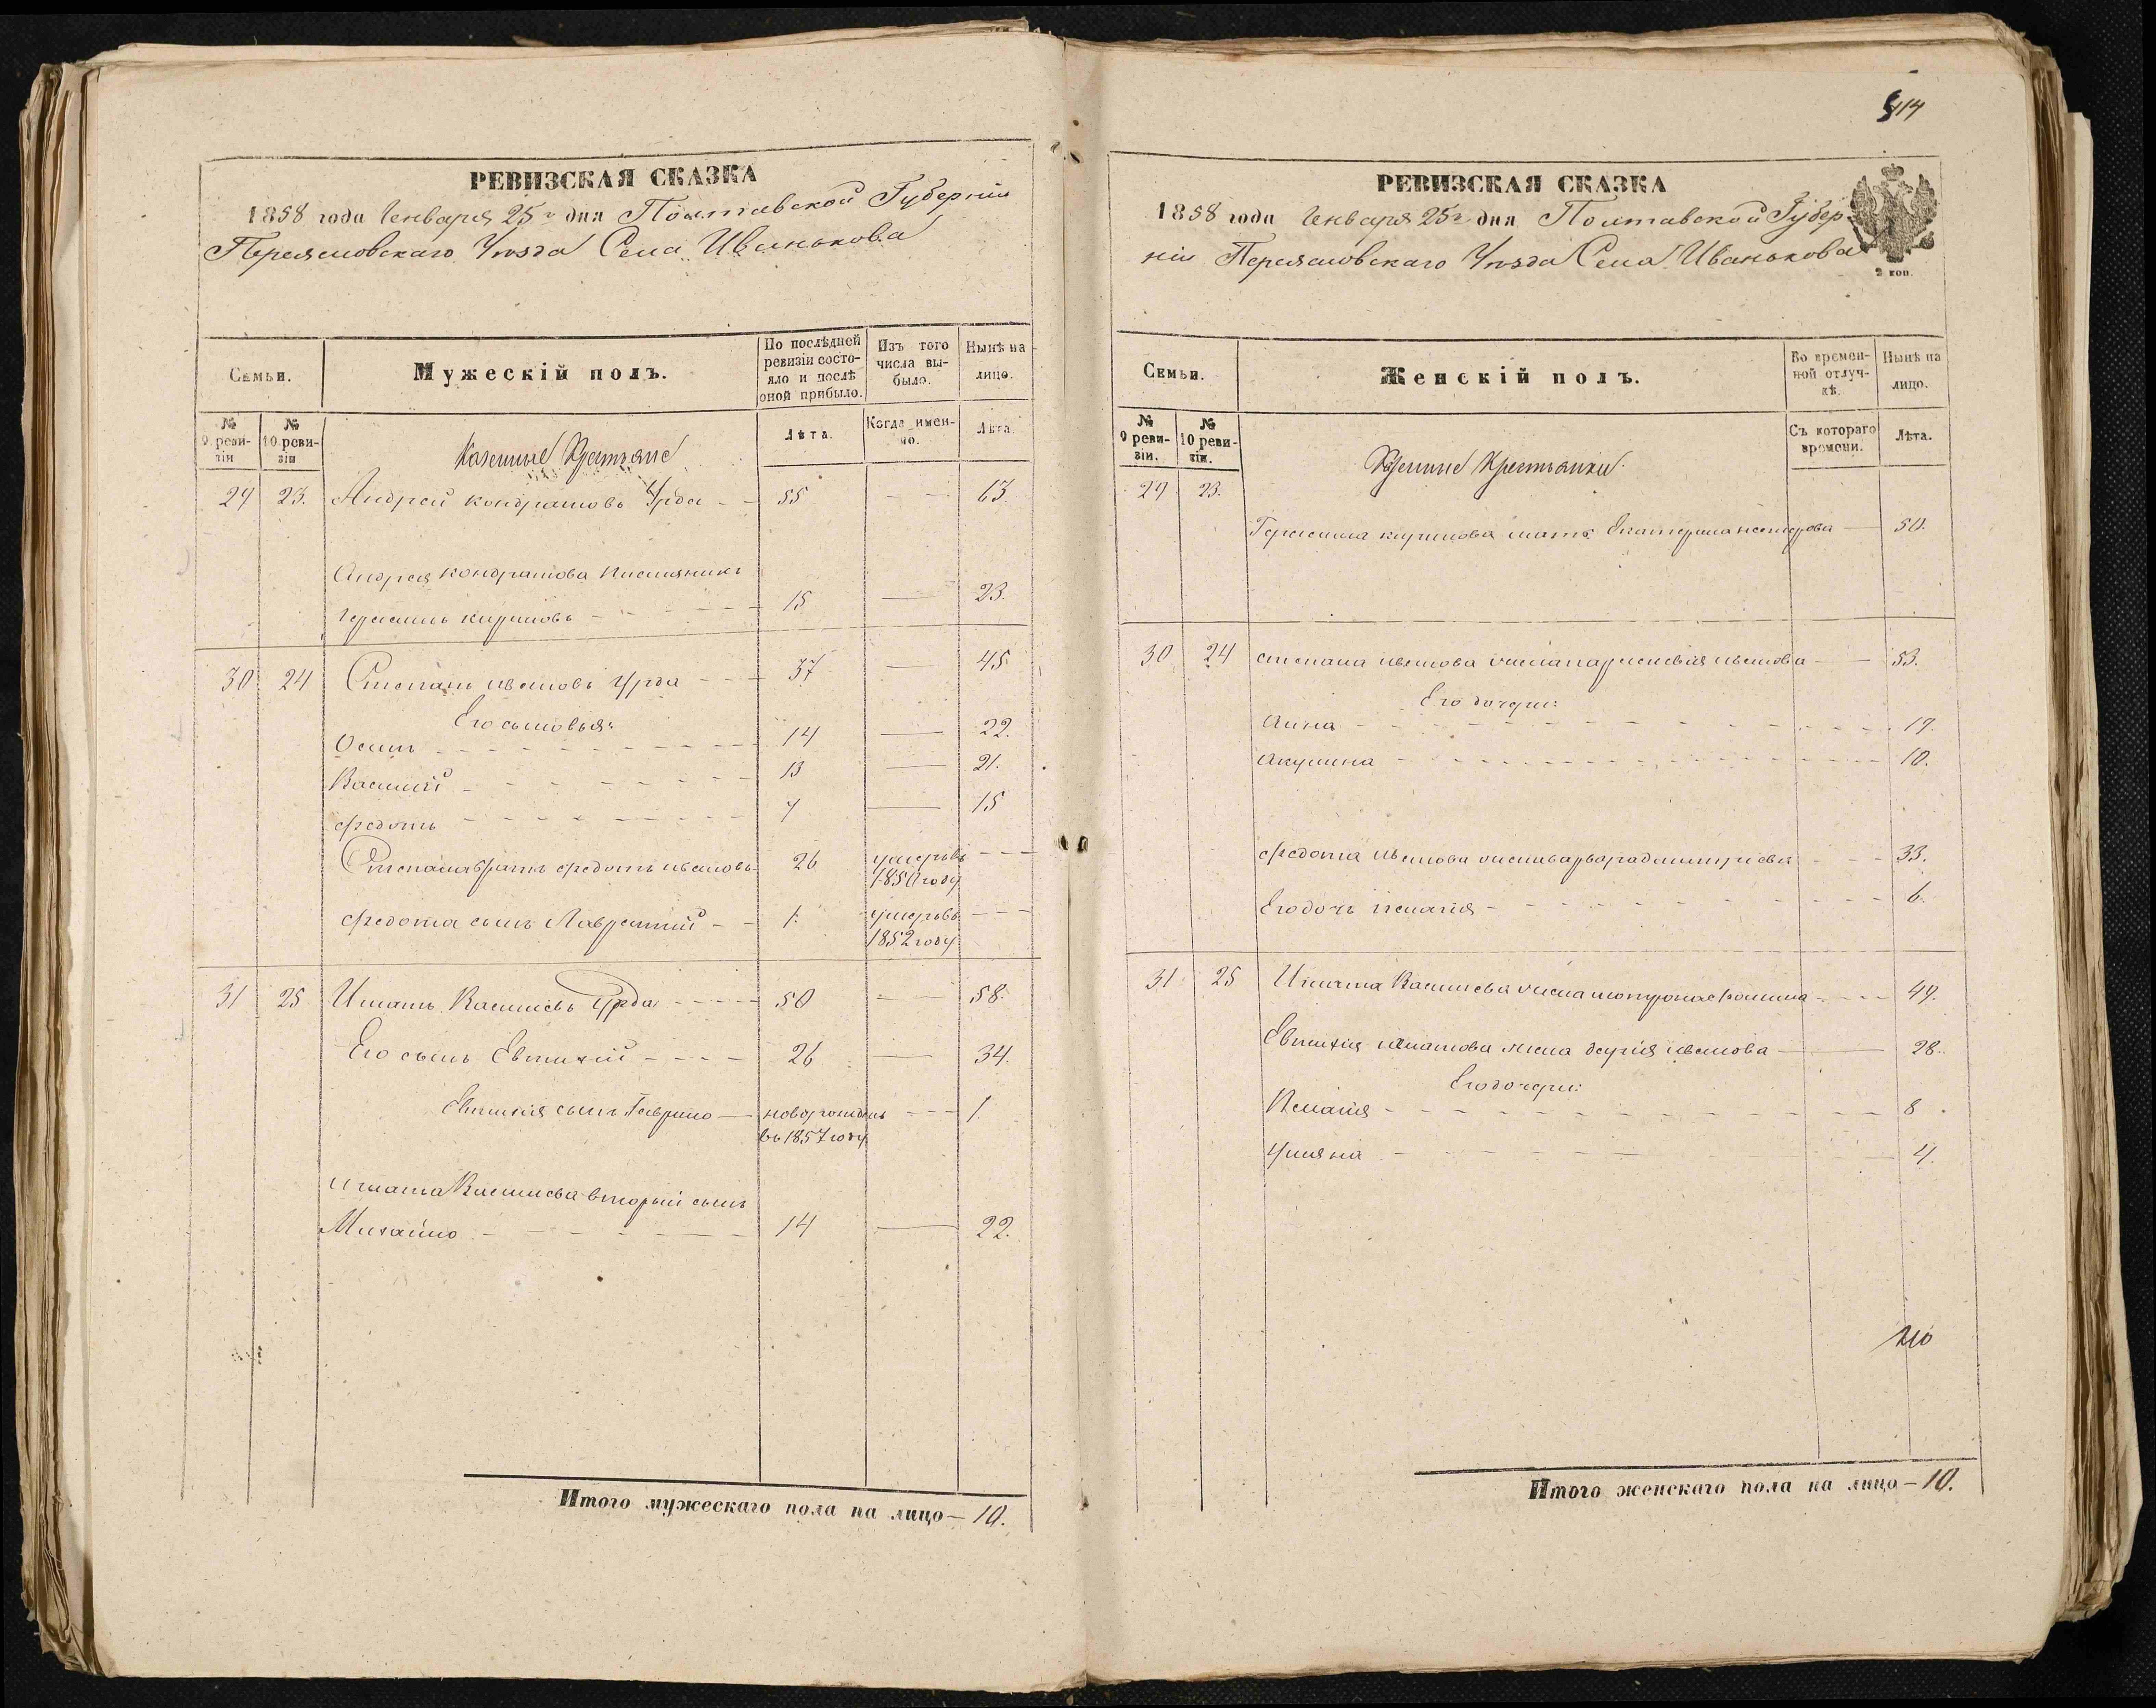 РЕВИЗСКАЯ СКАЗКА
1858 года Генваря 25го дня Полтавской Губерніи
Переяславскаго Уѣзда Села Иванькова
Семьи.
Мужескій полъ.
По послѣдней ревизіи состояло и послѣ оной прибыло.
Изъ того числа выбыло.
Нынѣ на лицо.
№ 9 ревизіи
№ 10 ревизіи
Казенные Крестьяне
Лѣта.
Когда именно.
Лѣта.
29 23. Андрей Кондратовъ Урда - - 55 - - 63.
Андрея Кондратова племянникъ
Герасимъ Кириловъ - - - - - 15 — 23.
30 24 Степанъ Ивановъ Урда - - - 37 — 45
Его сыновья:
Осипъ - - - - - - - - 14 — 22.
Василій - - - - - - - 13 — 21.
Федотъ - - - - - - - - 7 — 15
Степана братъ Федотъ Ивановъ 26 умеръ въ - - -
1850 году
Федота сынъ Лаврентій - - 1. умеръ въ - - -
1852 году
31 25 Игнатъ Васильевъ Урда - - - - 50 - — 58.
Его сынъ Евтихій - - - - 26 — 34.
Евтихія сынъ Гаврило — новорожденъ - - - 1.
въ 1857 году
Игната Васильева вторый сынъ
Михайло - - - - - - - 14 — 22.
Итого мужескаго пола на лицо — 10.
414
РЕВИЗСКАЯ СКАЗКА
1858 года Генваря 25го дня Полтавской Губер
ніи Переяславскаго Уѣзда Села Иванькова
2 коп.
Семьи.
Женскій полъ.
Во временной отлучкѣ.
Нынѣ на лицо.
№ 9 ревизіи.
№ 10 ревизіи.
Казенные Крестьянки
Съ котораго времени.
Лѣта.
29 23.
Герасима Кирилова мать Екатерина Нестерова — 50.
30 24 Степана Иванова жена Параскевія Иванова — — 53.
Его дочери:
Анна - - - - - - - - - - 19.
Акулина - - - - - - - - - - 10.
Федота Иванова жена Варвара Дмитріева - - - 33.
Его дочь Пелагія - - - - - - - - 6.
31 25 Игната Васильева жена Мотрона Фомина - - - - 49.
Евтихія Игнатова жена Дарія Иванова — — 28.
Его дочери:
Пелагія - - - - - - - - - - 8
Уліяна - - - - - - - - - 4.
Итого женскаго пола на лицо — 10.